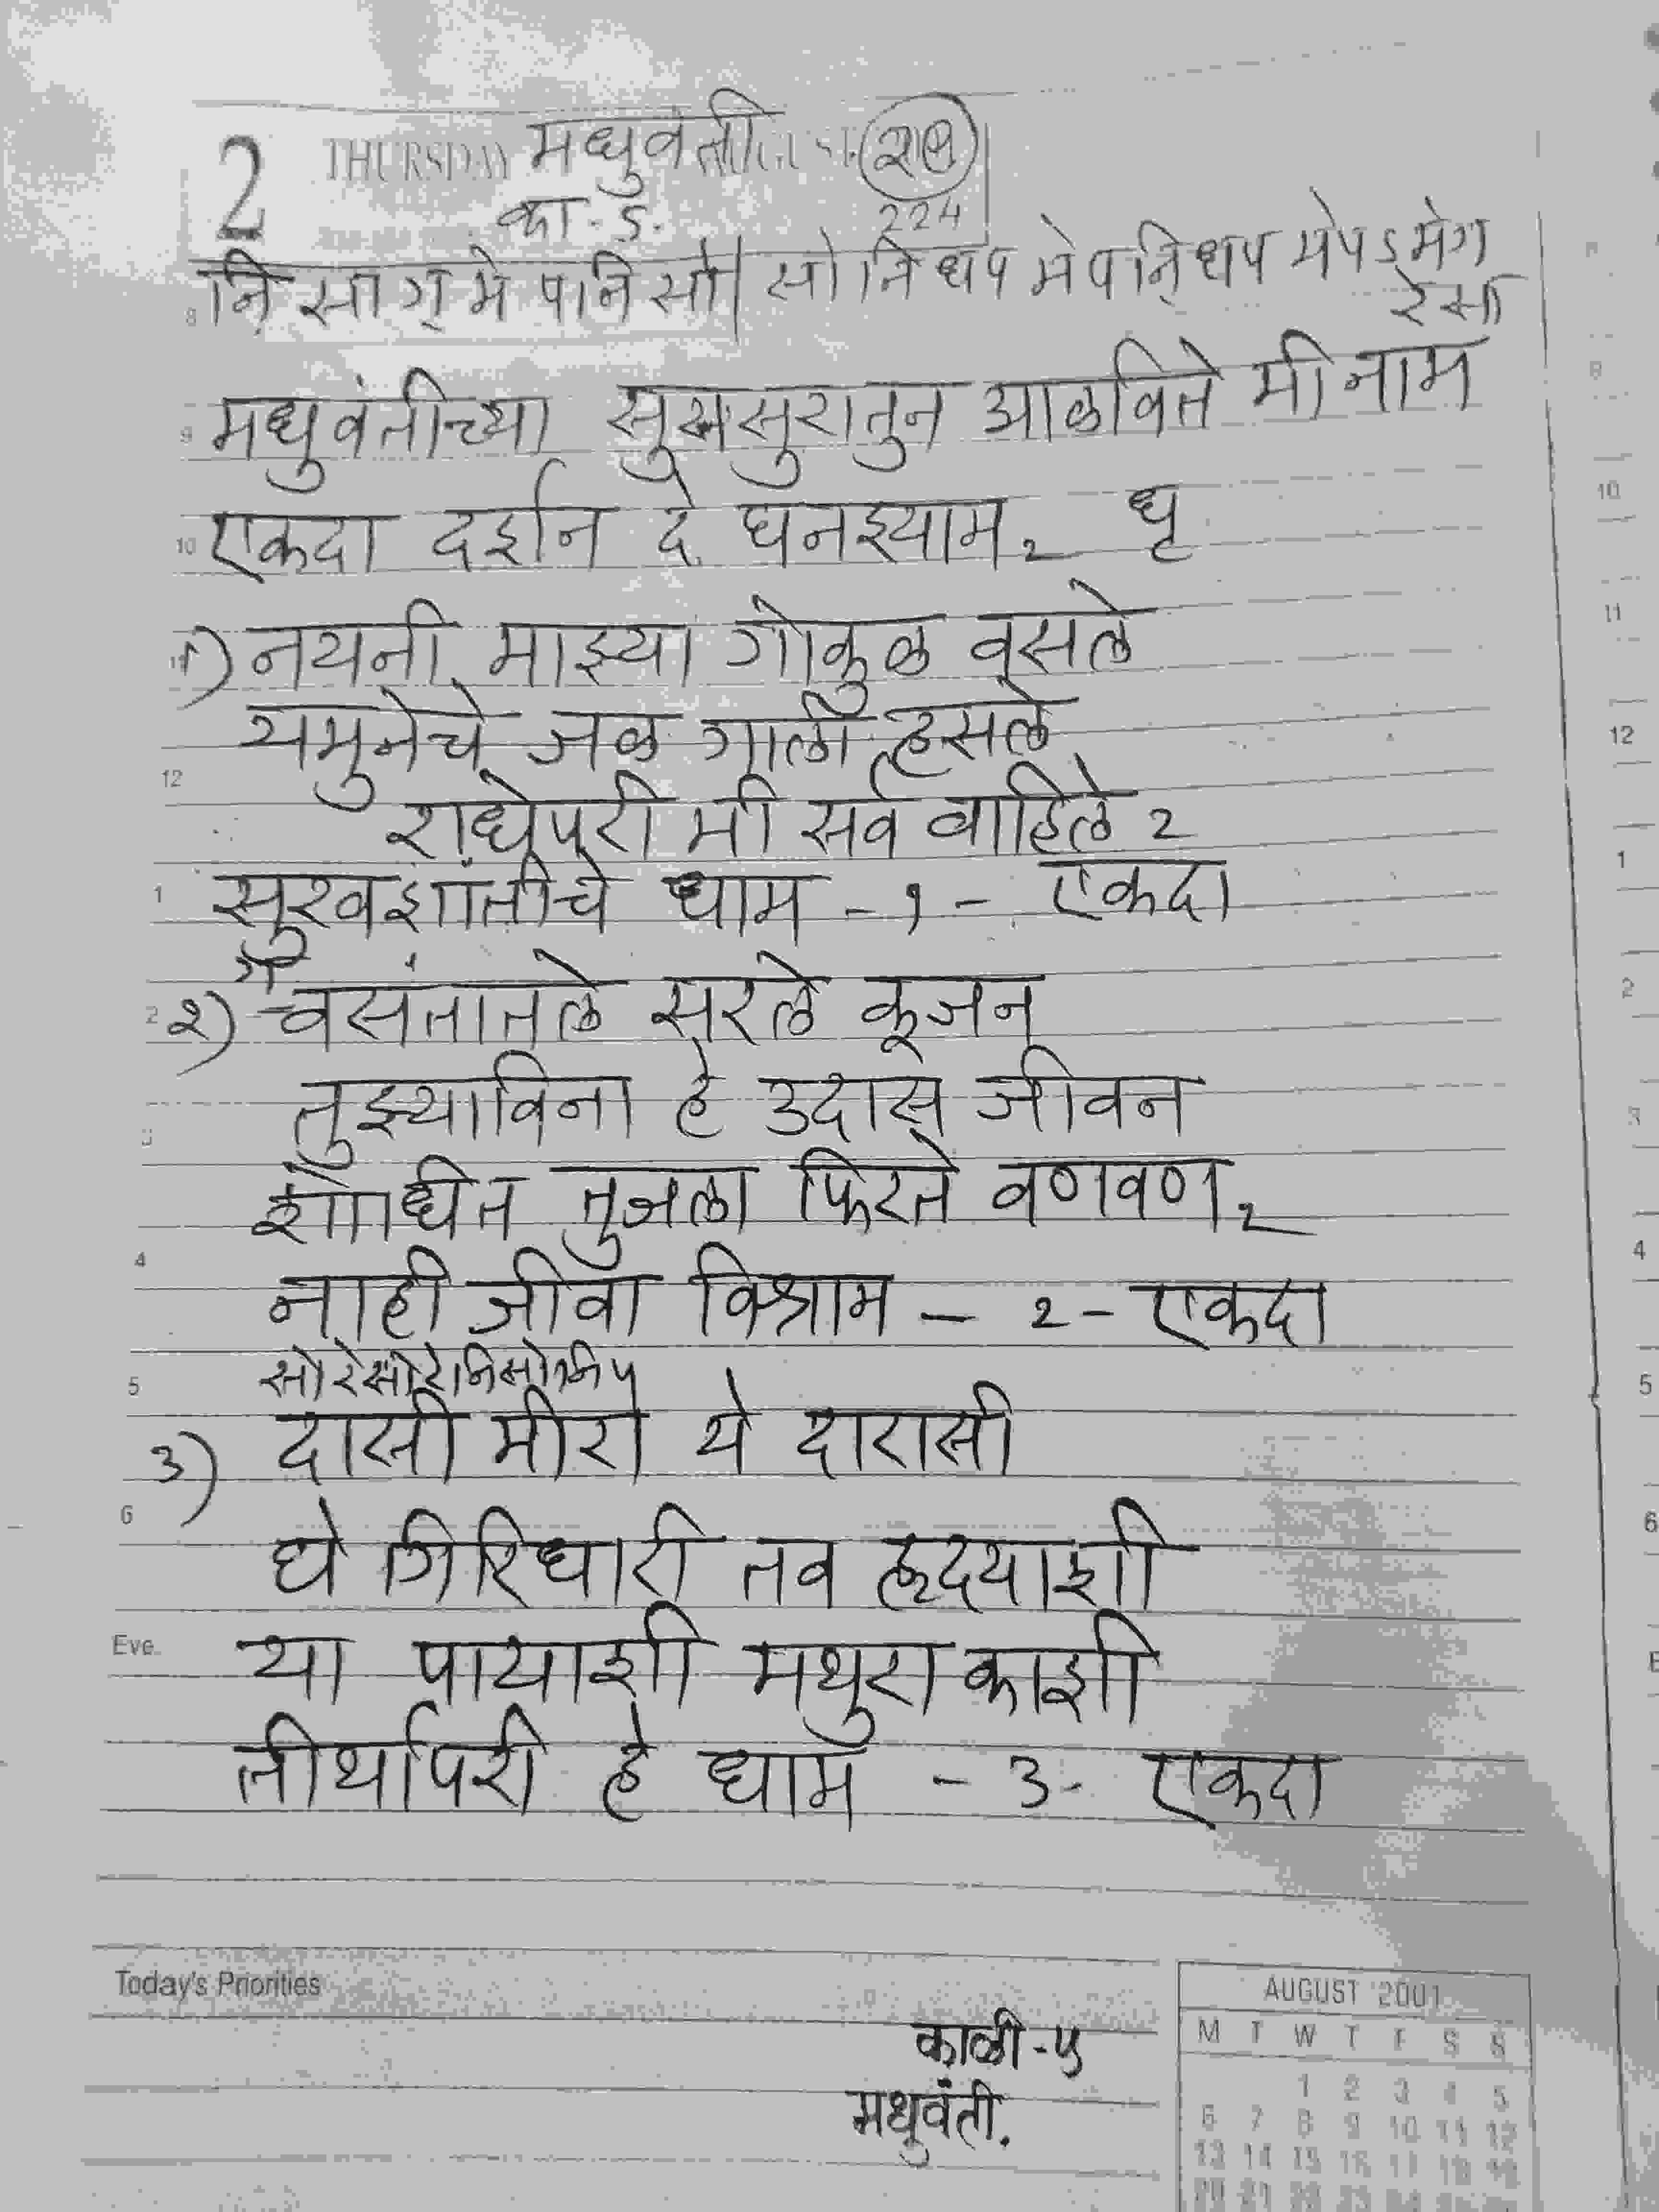 2 THURSDAY मधुवंती
का-5. 224
नि़ सा ग॒ मे प नि सां| सां नि ध प मे प नि ध प मे प ऽ मे ग॒
8 रे सा
9 मधुवंतीच्या सुरासुरातुन आळविते मी नाम
10 एकदा दर्शन दे घनश्याम २ धृ
१) नयनी माझ्या गोकुळ वसले
यमुनेचे जळ गाली हसले
12
राधेपरी मी सर्व वाहिले २
1 सुखशांतीचे धाम - १ - एकदा
2 २) वसंतातले सरले कूजन
तुझ्याविना हे उदास जीवन
3
शोधित तुजला फिरते वणवण २
4 नाही जीवा विश्राम - २ - एकदा
5 सांरेंसांरेंनिसांनिप
3) दासी मीरा ये दारासी
6
घे गिरिधारी तव हृदयाशी
Eve. या पायाशी मथुरा काशी
तीर्थापरी हे धाम - 3 - एकदा
Today's Priorities
काळी-५
मधुवंती.
AUGUST 2001
M T W T F S S
1 2 3 4 5
6 7 8 9 10 11 12
13 14 15 16 17 18 19
8
9
10
11
12
1
2
3
4
5
6